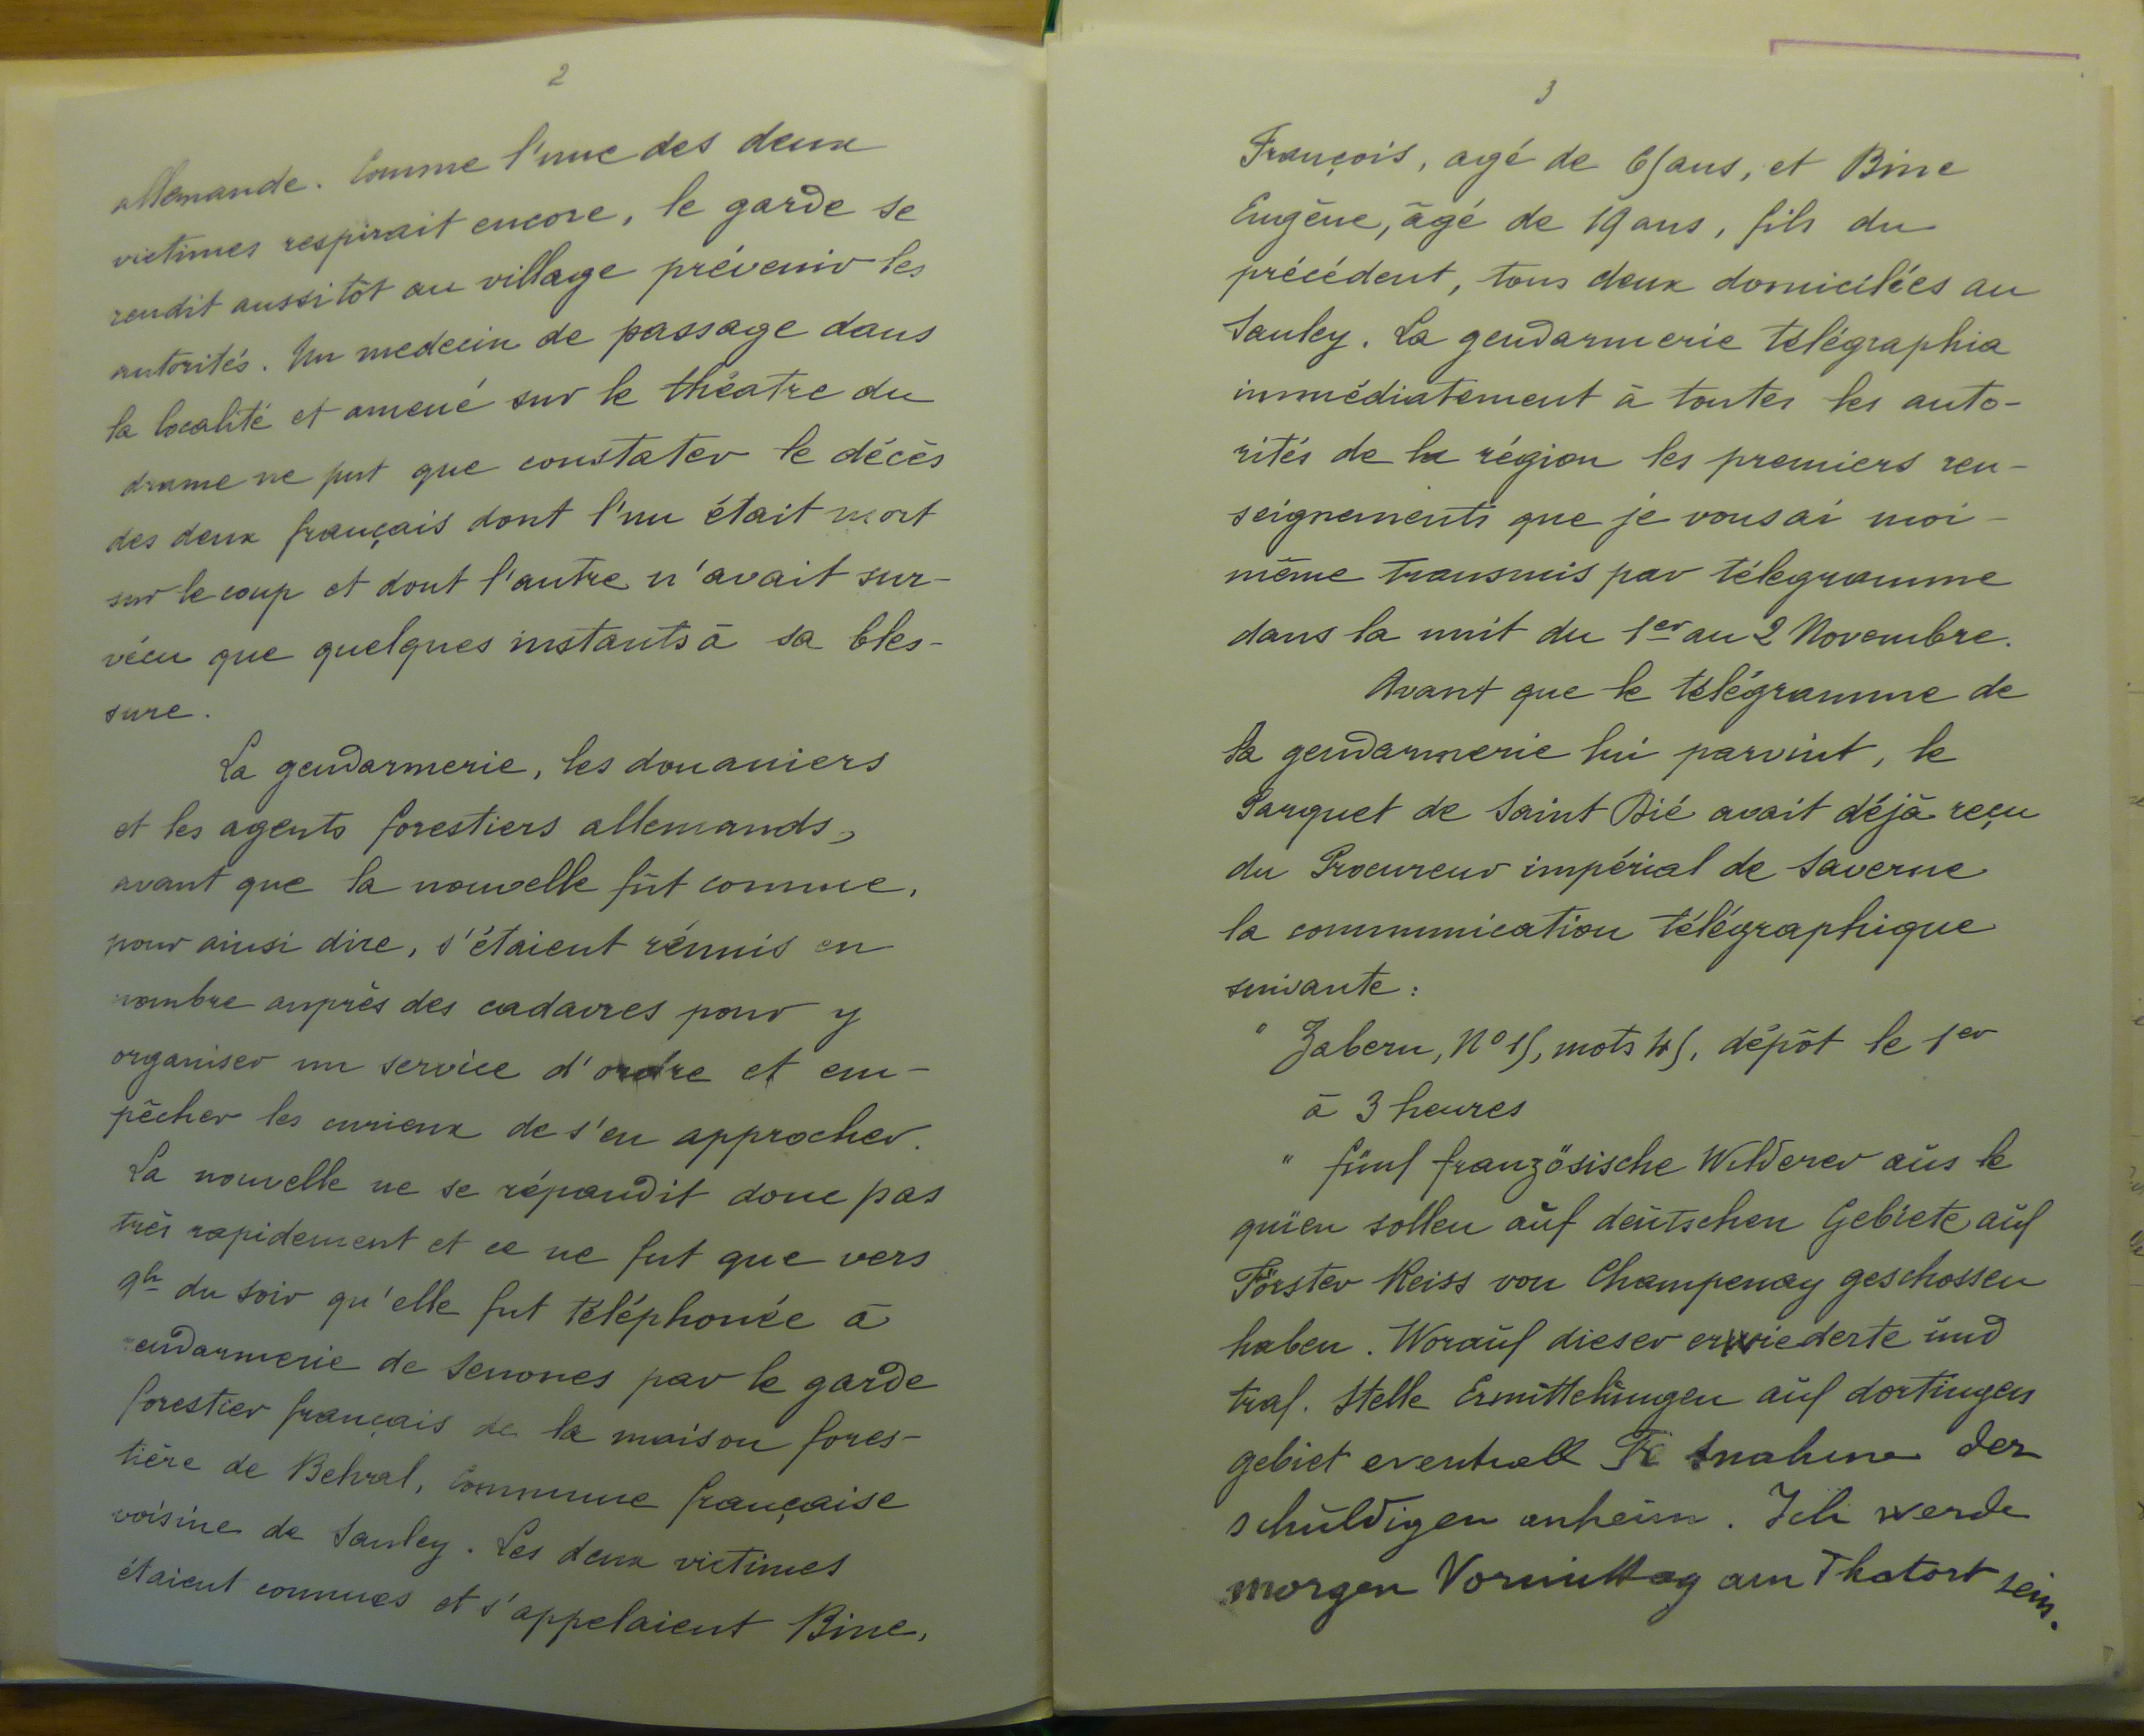 2
allemande. Comme l'une des deux
victimes respirait encore, le garde se
rendit aussitôt au village prévenir les
autorités. Un medecin de passage dans
la localité et amené sur le théatre du
drame ne put que constater le décès
des deux français dont l'un était mort
sur le coup et dont l'autre n'avait sur-
vécu que quelques instants à sa bles-
sure.
La gendarmerie, les douaniers
et les agents forestiers allemands,
avant que la nouvelle fût connue,
pour ainsi dire, s'étaient réunis en
nombre auprès des cadavres pour y
organiser un service d'ordre et em-
pêcher les curieux de s'en approcher.
La nouvelle ne se répandit donc pas
très rapidement et ce ne fut que vers
9h du soir qu'elle fut téléphonée à
gendarmerie de Senones par le garde
forestier français de la maison fores-
tière de Belval, Commune française
voisine de Saulcy. Les deux victimes
étaient connues et s'appelaient Bine,
3
François, agé de 65 ans, et Bine
Eugène, âgé de 19 ans, fils du
précédent, tous deux domicilées au
Saulcy. La gendarmerie télégraphia
immédiatement à toutes les auto-
rités de la région les premiers ren-
seignements que je vous ai moi-
même transmis par télegramme
dans la nuit du 1er au 2 Novembre.
Avant que le télégramme de
la gendarmerie lui parvint, le
Parquet de Saint Dié avait déjà reçu
du Procureur impérial de Saverne
la communication télégraphique
suivante:
" Zabern, No 15, mots 45, dépôt le 1er
à 3 heures
" fünf französische Wilderer aus le
quien sollen auf deutschen Gebiete auf
Förster Reiss von Champenay geschossen
haben. Worauf dieser erwiederte und
traf. Stelle Ermittelungen auf dortingen
gebiet eventuell der
schuldigen anheim. Ich werde
morgen Vormittag am Thatort sein.